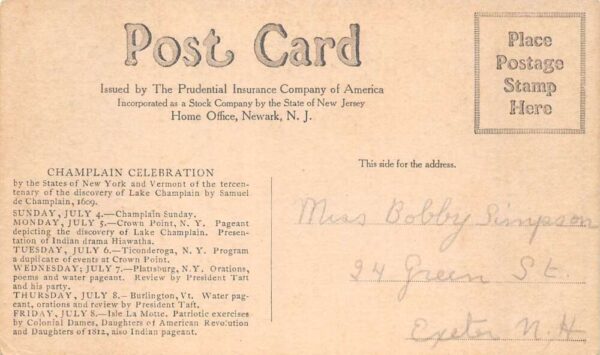 Post Card
Issued by The Prudential Insurance Company of America
Incorporated as a Stock Company by the State of New Jersey
Home Office, Newark, N. J.
Place
Postage
Stamp
Here
CHAMPLAIN CELEBRATION
by the States of New York and Vermont of the tercen-
tenary of the discovery of Lake Champlain by Samuel
de Champlain, 1609.
SUNDAY, JULY 4.—Champlain Sunday.
MONDAY, JULY 5.—Crown Point, N. Y. Pageant
depicting the discovery of Lake Champlain. Presen-
tation of Indian drama Hiawatha.
TUESDAY, JULY 6.—Ticonderoga, N. Y. Program
a duplicate of events at Crown Point.
WEDNESDAY; JULY 7.—Plattsburg, N.Y. Orations,
poems and water pageant. Review by President Taft
and his party.
THURSDAY, JULY 8.—Burlington, Vt. Water pag-
eant, orations and review by President Taft.
FRIDAY, JULY 8.—Isle La Motte. Patriotic exercises
by Colonial Dames, Daughters of American Revolution
and Daughters of 1812, also Indian pageant.
This side for the address.
Miss Bobby Simpson
24 Green St.
Exeter N.H